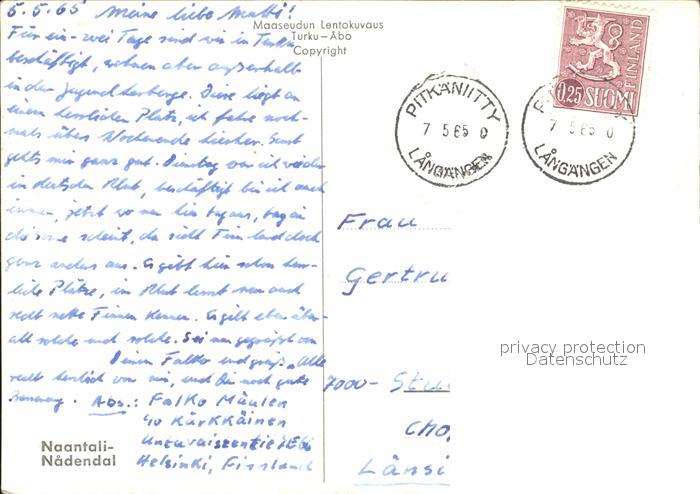 5.5.65 Meine liebe Mutti!
Für ein-zwei Tage sind wir in Turku
beschäftigt, wohnen aber außerhalb
in der Jugendherberge. Diese liegt an
einem herrlichen Platz, ich fahre noch-
mals übers Wochenende hierher. Sonst
gehts mir ganz gut. Dienstag war ich wieder
im deutschen Klub, beschäftigt bin ich auch
immer, jetzt wo nun hin
die Sonne scheint, da sieht Finnland doch
ganz anders aus. Es gibt hier schon herr-
liche Plätze, im Klub lernt man auch
recht nette Finnen kennen. Es gibt eben über-
all solche und solche. Sei nun gegrüßt von
Deinem Falko und grüße Alle
recht herzlich von mir, und Dir noch gute
Abs.: Falko Mäulen
c/o Kärkkäinen
Helsinki, Finnland
Maaseudun Lentokuvaus
Turku–Åbo
Copyright
PITKÄNIITTY
7 5 65 0
LÅNGÄNGEN
7 5 65 0
LÅNGÄNGEN
0,25 SUOMI
FINLAND
Frau
Gertru
7000- Stu
Länsi
privacy protection
Datenschutz
Naantali-
Nådendal